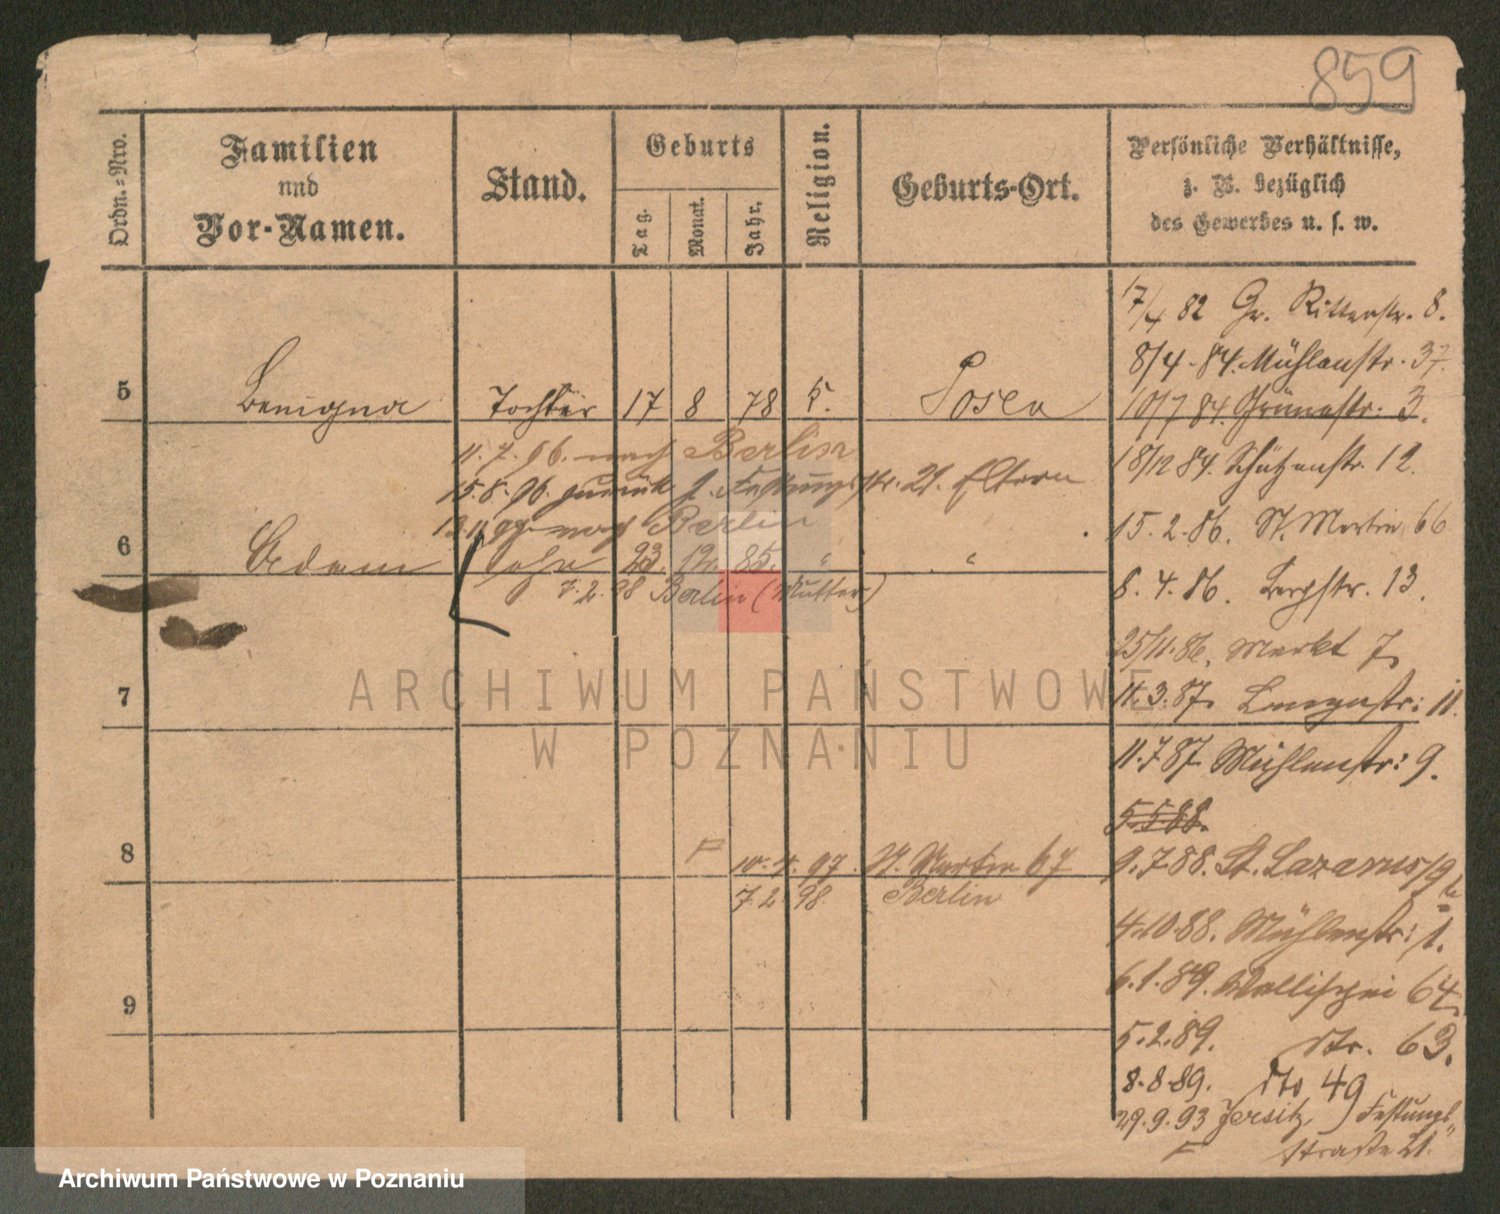 859
Ordn.=Nro.
Familien
und
Vor-Namen.
Stand.
Geburts
Tag.
Monat.
Jahr.
Religion.
Geburts-Ort.
Persönliche Verhältnisse,
z. B. bezüglich
des Gewerbes u. s. w.
17/4 82 Gr. Ritterstr. 8.
8/4 - 84. Mühlenstr. 37.
5 Benigna Tochter 17 8 78 k. Posen
10/7 84. Grünestr. 3.
11.7.96. nach Berlin
18/12 84. Schützenstr. 12.
15.8.96. zurück Festungsstr. 21. Eltern
nach Berlin
15.2.86. St. Martin 66
6 Adam Sohn 23. 12. 85. " "
7.2.98 Berlin (Mutter)
8.4.86. Bergstr. 13.
25/11.86. Markt 7
7
11.3.87. Langestr: 11.
11.7.87 Mühlenstr: 9.
5.5.88.
8
10.4.97. St. Martin 67
9.7.88. St. Lazarus
7.2.98. Berlin
4.10.88. Mühlenstr: 1.
6.1.89. Wallischei 64
9
5.2.89. dto. 63.
8.8.89. dto 49
29.9.93 Jersitz, Festungs-
strasse 21.
ARCHIWUM PAŃSTWOWE
W POZNANIU
Archiwum Państwowe w Poznaniu